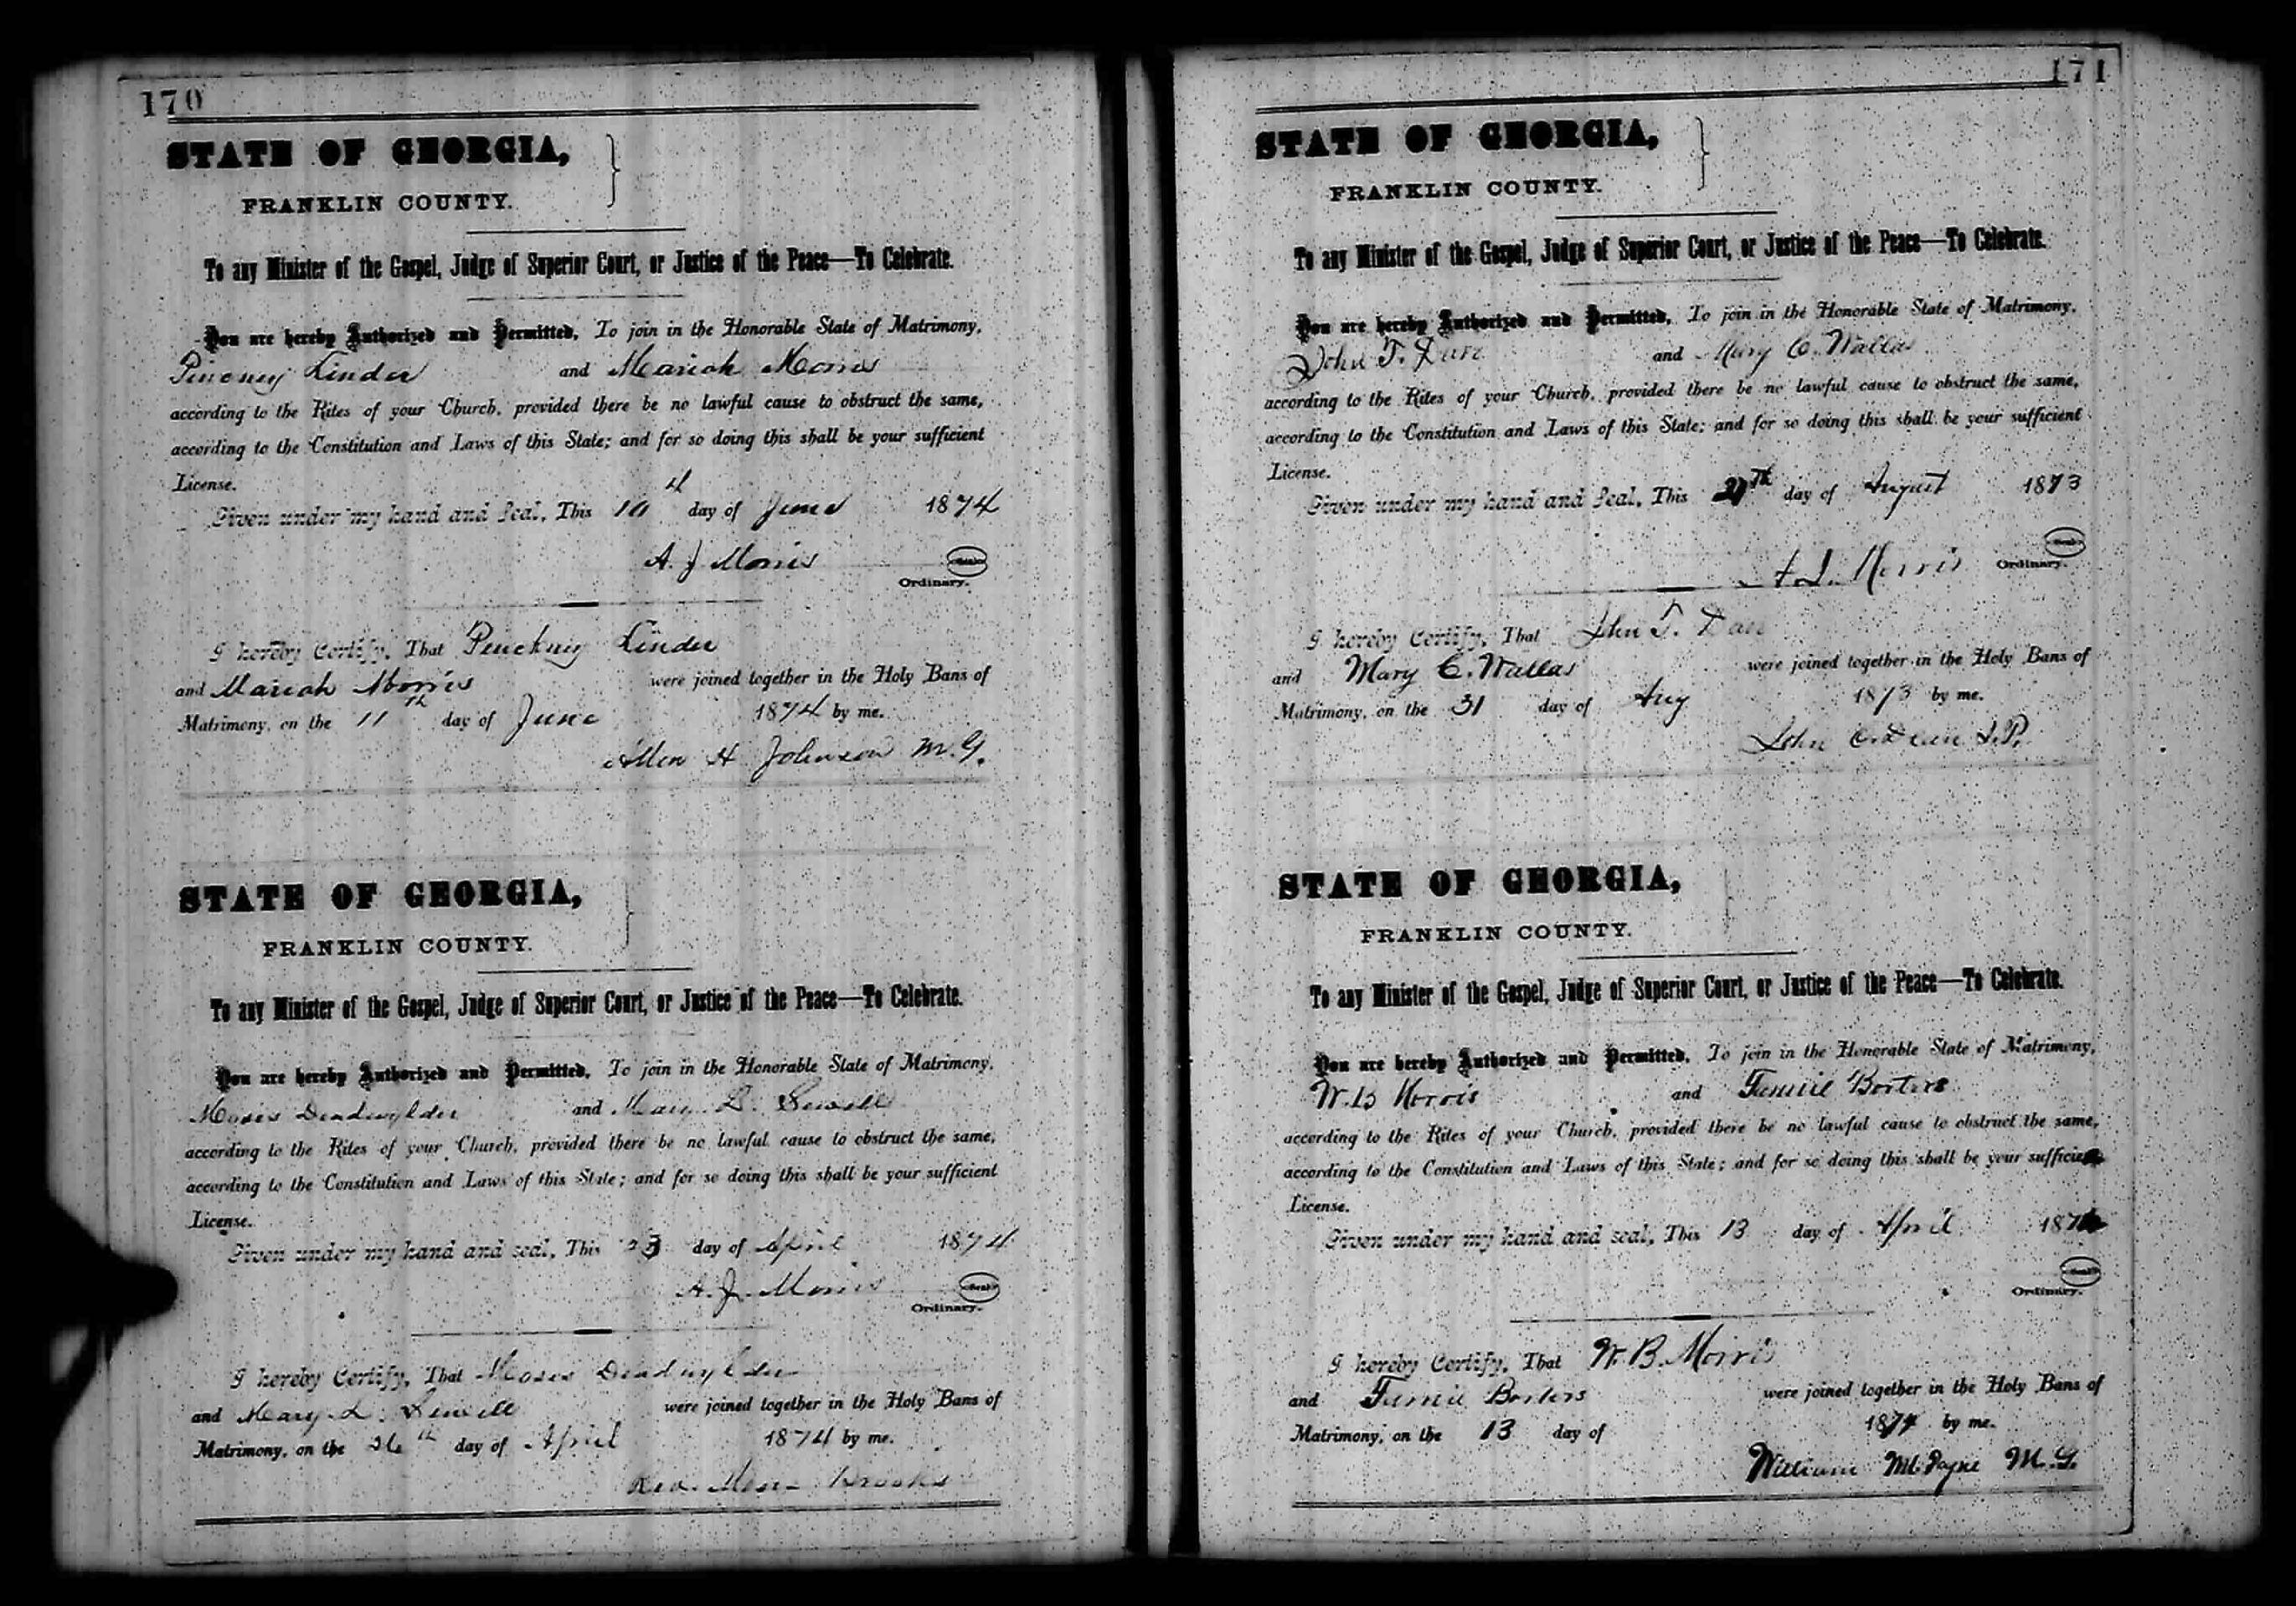 170
STATE OF GEORGIA,
FRANKLIN COUNTY.
To any Minister of the Gospel, Judge of Superior Court, or Justice of the Peace—To Celebrate.
You are hereby Authorized and Permitted, To join in the Honorable State of Matrimony,
Pinckney Linder and Mariah Morris
according to the Rites of your Church, provided there be no lawful cause to obstruct the same,
according to the Constitution and Laws of this State; and for so doing this shall be your sufficient
License.
Given under my hand and Seal, This day of June 1874
A. J. Morris Seal
Ordinary.
I hereby Certify, That Pinckney Linder
and Mariah Morris were joined together in the Holy Bans of
Matrimony, on the 11th day of June 1874 by me.
Allen H Johnson M.G.
STATE OF GEORGIA,
FRANKLIN COUNTY.
To any Minister of the Gospel, Judge of Superior Court, or Justice of the Peace—To Celebrate.
You are hereby Authorized and Permitted, To join in the Honorable State of Matrimony,
Moses Deadwylder and Mary L. Sewell
according to the Rites of your Church, provided there be no lawful cause to obstruct the same,
according to the Constitution and Laws of this State; and for so doing this shall be your sufficient
License.
Given under my hand and seal, This 23 day of April 1874
A. J. Morris Seal
Ordinary.
I hereby Certify, That Moses Deadwylder
and Mary L. Sewell were joined together in the Holy Bans of
Matrimony, on the 26th day of April 1874 by me.
Rev. Brooks
171
STATE OF GEORGIA,
FRANKLIN COUNTY.
To any Minister of the Gospel, Judge of Superior Court, or Justice of the Peace—To Celebrate.
You are hereby Authorized and Permitted, To join in the Honorable State of Matrimony,
John T. and Mary C. Wallas
according to the Rites of your Church, provided there be no lawful cause to obstruct the same,
according to the Constitution and Laws of this State; and for so doing this shall be your sufficient
License.
Given under my hand and Seal, This day of August 1873
A. J. Morris Seal
Ordinary.
I hereby Certify, That John T.
and Mary C. Wallas were joined together in the Holy Bans of
Matrimony, on the 31 day of Aug 1873 by me.
John C. Dean J.P.
STATE OF GEORGIA,
FRANKLIN COUNTY.
To any Minister of the Gospel, Judge of Superior Court, or Justice of the Peace—To Celebrate.
You are hereby Authorized and Permitted, To join in the Honorable State of Matrimony,
W. B Morris and Fannie Borters
according to the Rites of your Church, provided there be no lawful cause to obstruct the same,
according to the Constitution and Laws of this State; and for so doing this shall be your sufficient
License.
Given under my hand and seal, This 13 day of April 1874
Seal
Ordinary.
I hereby Certify, That W. B. Morris
and Fannie Borters were joined together in the Holy Bans of
Matrimony, on the 13 day of 1874 by me.
William M. Payne M.G.